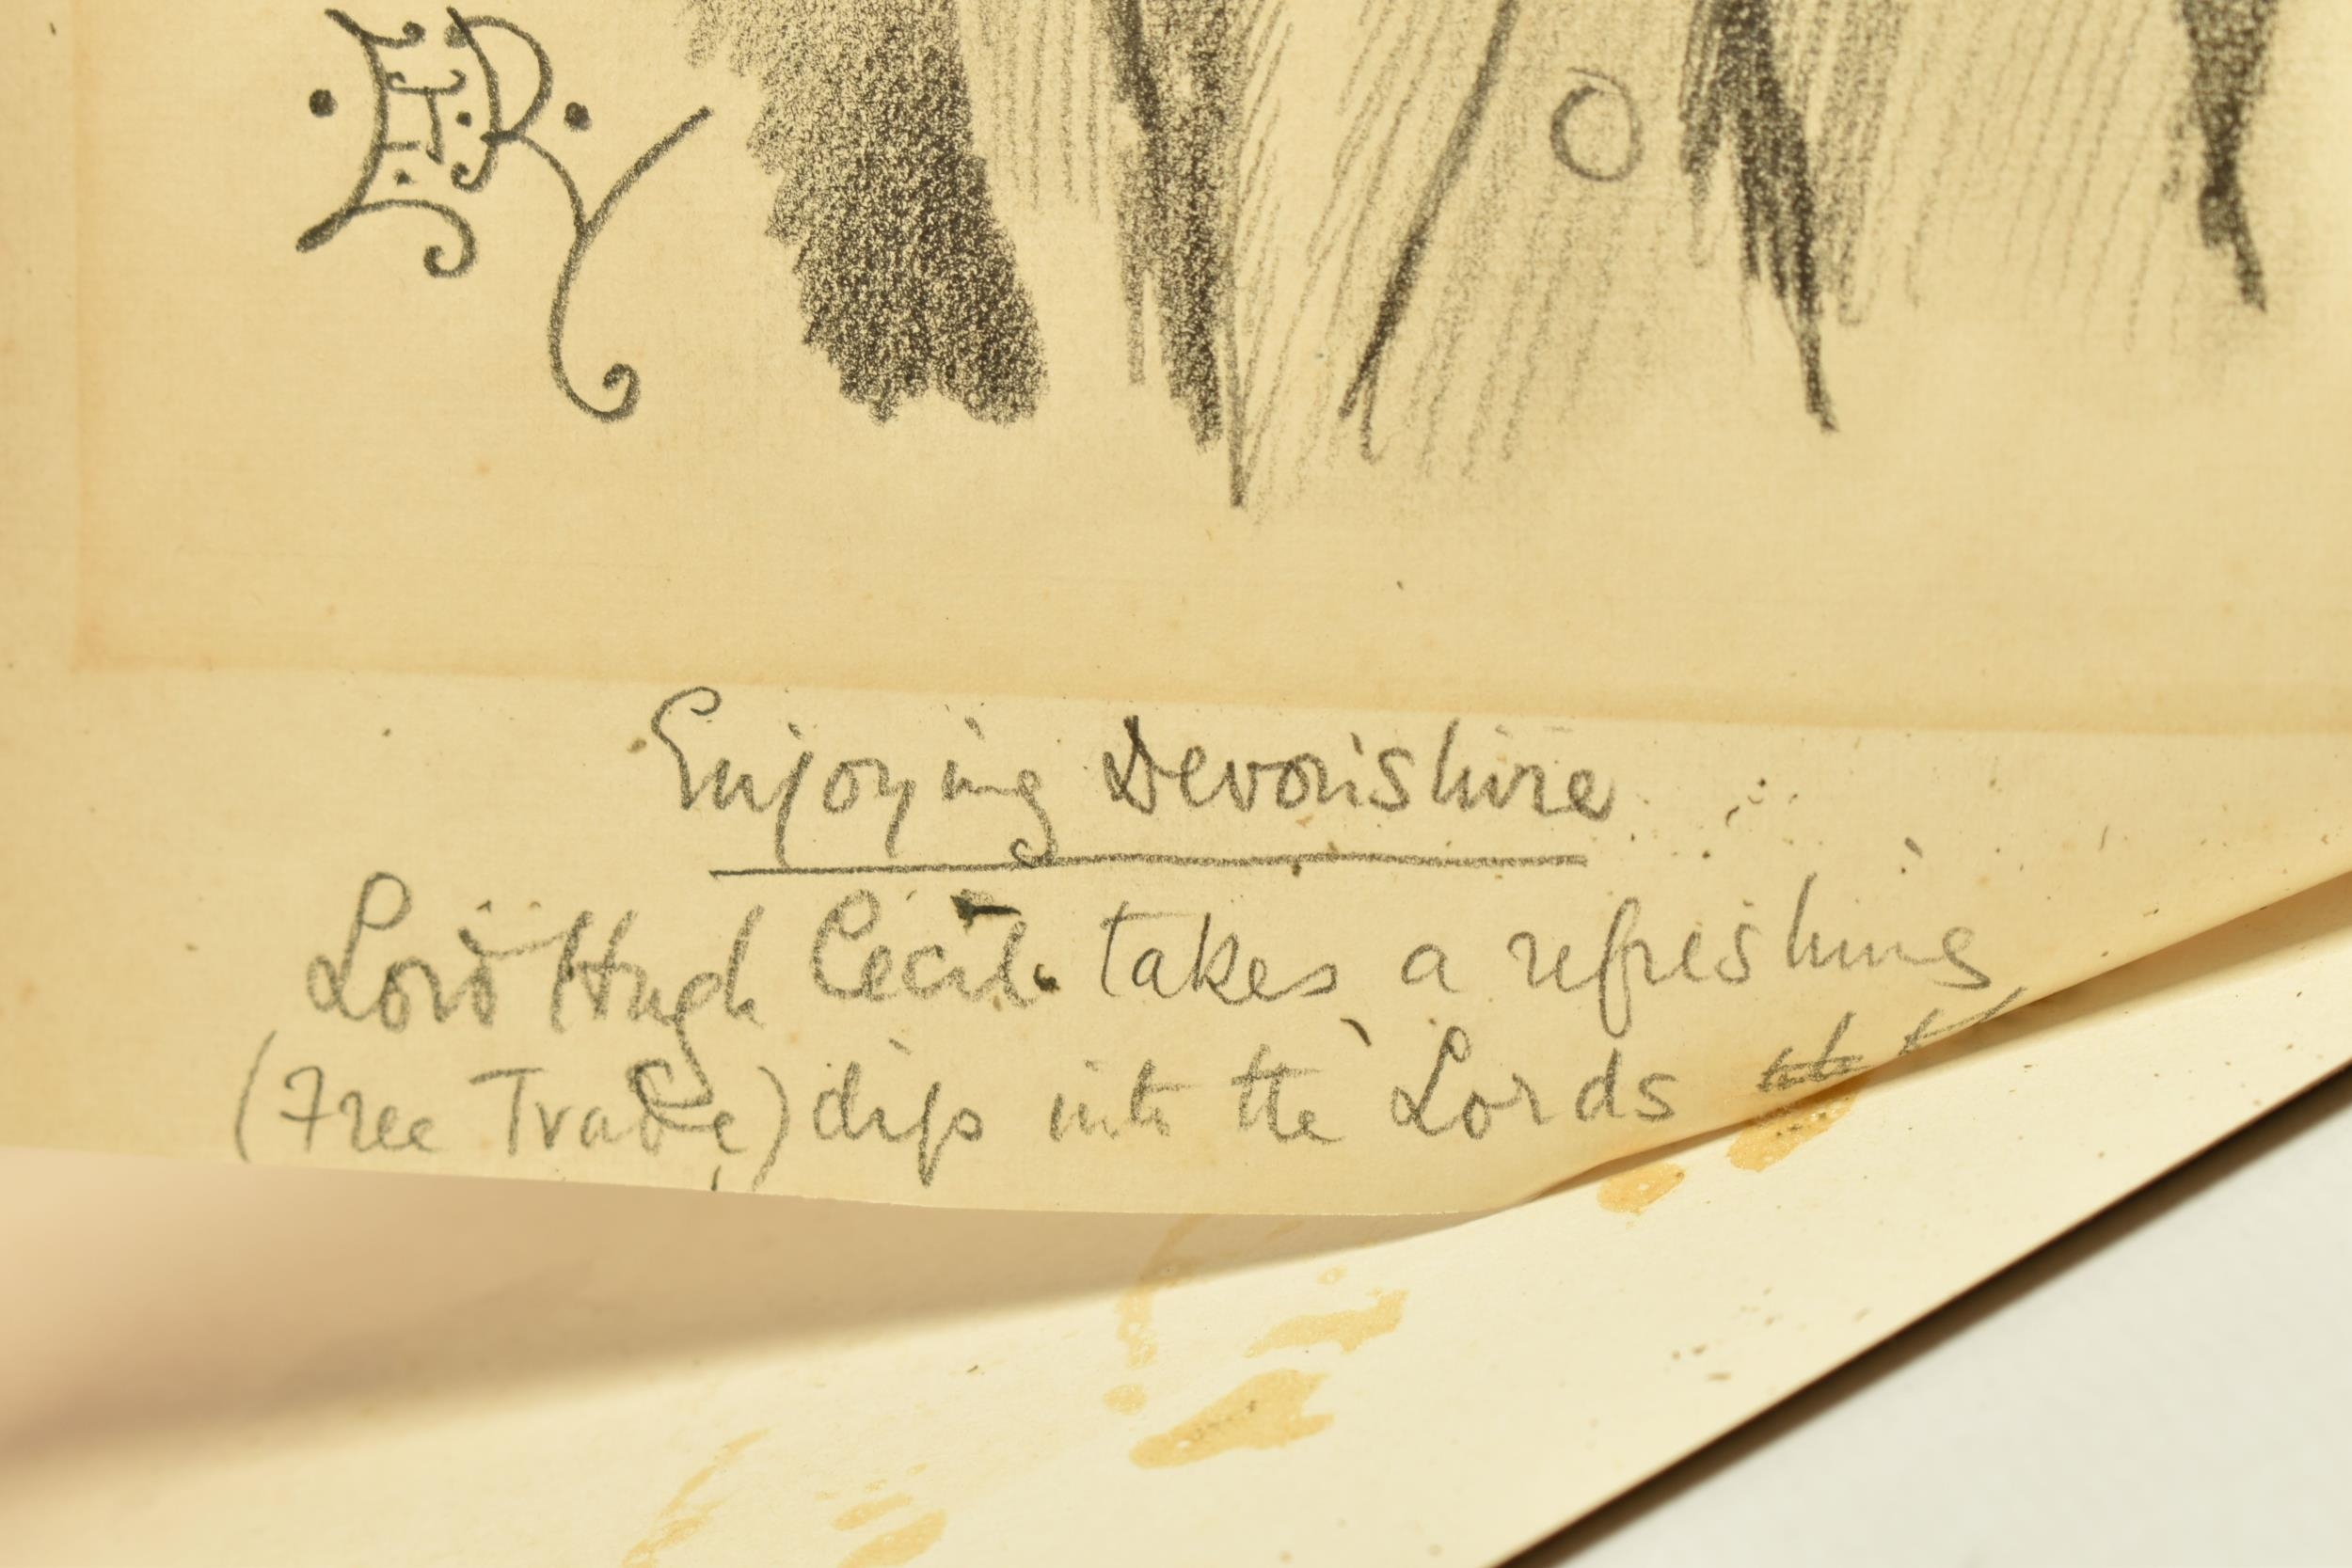 E.T.R
Enjoying Devonshire
Lord Hugh Cecil takes a refreshing
(Free Trade) dip into the Lords